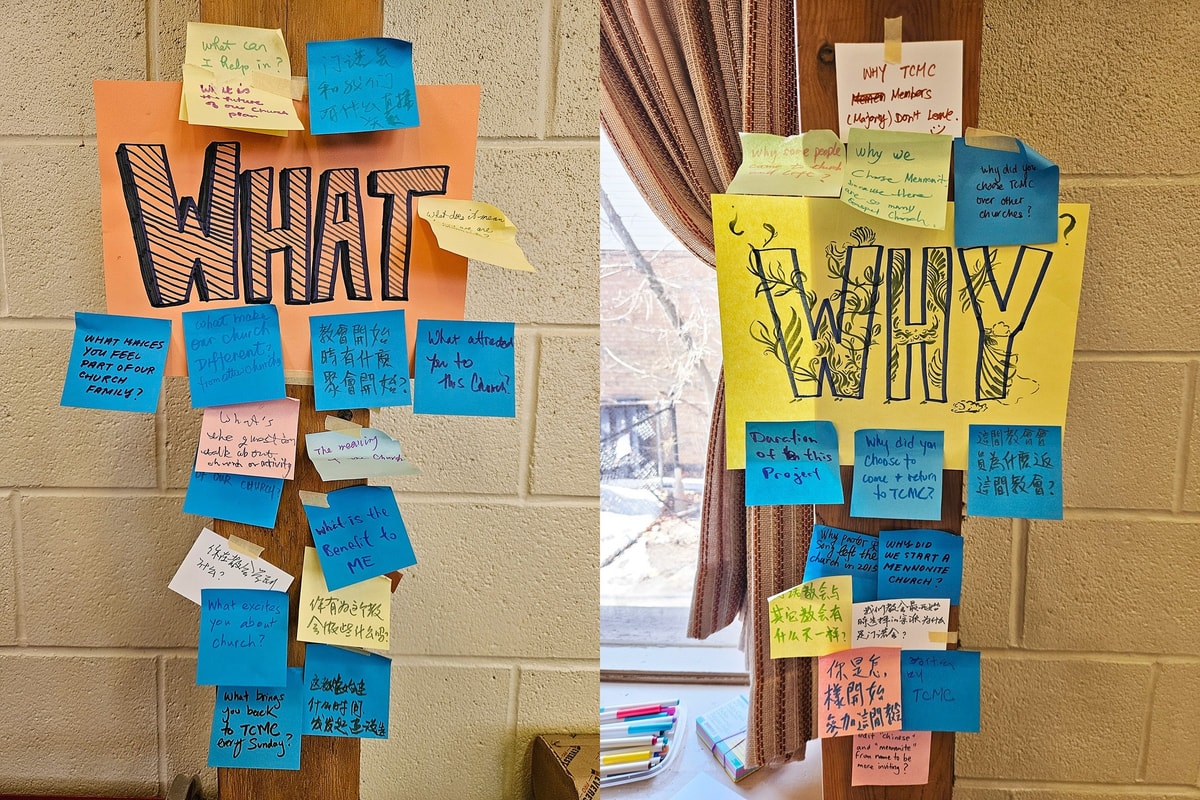 What can
I help in?
What is
the future
of our Church
plan
门诺会
和我们
有什么
WHAT
What does it mean
WHAT MAKES
YOU FEEL
PART OF OUR
CHURCH
FAMILY?
What make
our church
Different?
from other church
教會開始
時有什麼
聚會開始?
What attracted
you to
this Church?
What's
the question
walk about
church or activity
OF OUR CHURCH?
The meaning
Church
What is the
Benefit to
ME
你在教会
什么?
What excites
you about
church?
你有为这个教
会做些什么吗?
What brings
you back
to TCMC
every Sunday?
什么时间
WHY TCMC
Members
(Majority) Don't Leave.
Why some people
church
why we
Choose Mennonite
because there
are so many
Church.
Why did you
choose TCMC
over other
churches?
¿ WHY ?
Duration
of this
Project
Why did you
choose to
come + return
to TCMC?
這間教會會
員為什麼返
這間教會?
Why pastor
Song left the
church in 2015
WHY DID
WE START A
MENNONITE
CHURCH?
教会与
其它教会有
什么不一样?
我们教会最开始
时选择的宗派为什么
是门诺会?
你是怎
樣開始
參加這間教會
TCMC
"Chinese"
and "mennonite"
from name to be
more inviting?